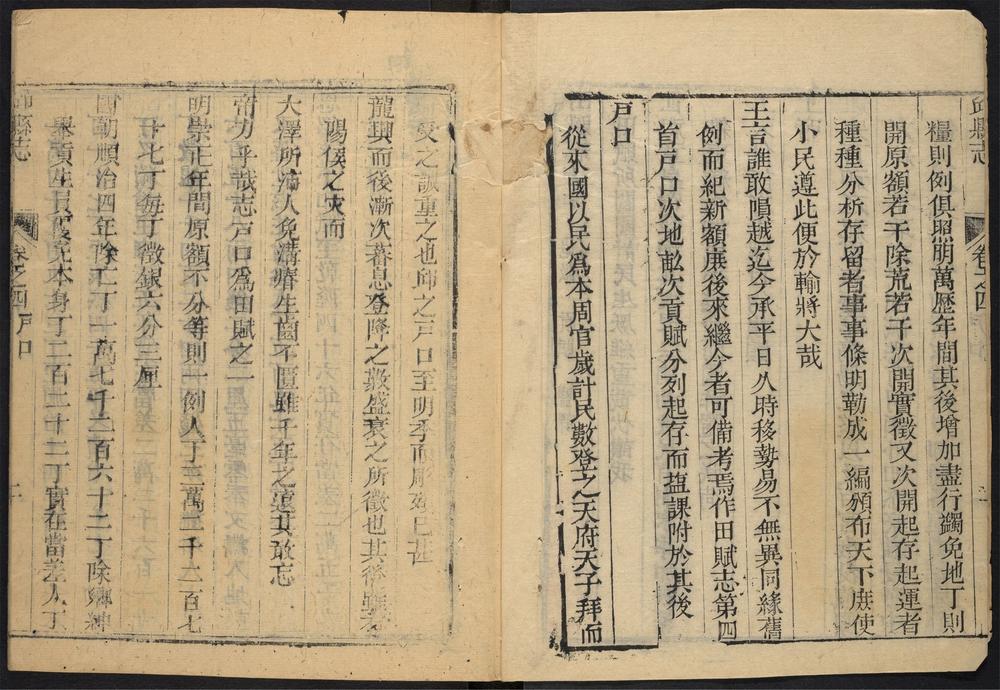 縣志
卷之四
糧則例俱照明萬歷年間其後增加盡行蠲免地丁則
開原額若干除荒若干次開實徵又次開起存起運者
種種分析存留者事事條明勒成一編頒布天下庶使
小民遵此便於輸將大哉
王言誰敢隕越迄今承平日久時移勢易不無異同緣舊
例而紀新額庚後來繼今者可備考焉作田賦志第四
首戶口次地畝次貢賦分列起存而蓝課附於其後
戶口
從來國以民爲本周官歲計民數登之天府天子拜而
受之誠重之也邱之戶口至明季而彫殘已甚
龍興而後漸次蕃息登降之數盛衰之所徵也其後
陽侯之灾而
大澤所沛人免溝瘠生齒不匱雖千年之遠其敢忘
帝力乎哉志戶口爲田賦之一
明崇正年間原額不分等則一例人丁三萬三千二百七
十七丁每丁徵銀六分三厘
國朝順治四年除亡丁一萬七千二百六十二丁除鄉紳
舉貢生員優免本身丁二百二十二丁實在當差人丁
邱縣志
卷之四戶口